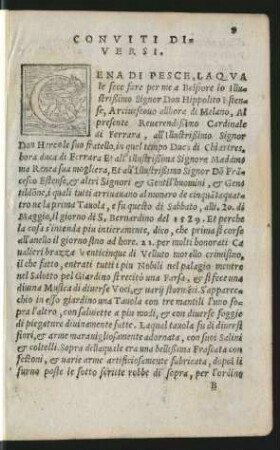 9
CONVITI DI-
VERSI.
CENA DI PESCE, LAQVA
le fece fare per me a Belfiore lo Illu
strißimo Signor Don Hippolito Esten-
se, Arciuescuo allhora di Melano, Al
presente Reuerendißimo Cardinale
di Ferrara, all'Illustrißimo Signor
Don Hercole suo fratello, in quel tempo Duca di Chartres,
hora duca di Ferrara Et all'Illustrißima Signora Madama
ma Renea sua mogliera, Et all'Illustrißimo Signor Dō Frā-
cesco Estense, & altri Signori & Gentil'huomini, & Gen-
tildōne, i quali tutti arriuauano al numero di cinquātaquat-
tro ne la prima Tauola, e fu questo di Sabbato, alli. 20. di
Maggio, il giorno di S. Bernardino del 1529. Et perche
la cosa s'intenda piu interamente, dico, che prima si corse
all'anello il giorno sino ad hore. 21. per molti honorati Ca-
ualieri brazza venticinque di Velluto morello crimisino,
il che fatto, entrati tutti i piu nobili nel palagio mentre
nel Salotto pel Giardino si recitò una Farsa, & si fece una
diuina Musica di diuerse Voci, & uarij stormēti. S'apparec-
chio in esso giardino una Tauola con tre mantili l'uno so-
pra l'altro, con saluiette a piu modi, & con diuerse foggie
di piegature diuinamente fatte. Laqual tauola fu di diuersi
fiori, & arme marauigliosamente adornata, con suoi Salini
& coltelli. Sopra dellaquale era una bellißima Frascata con
festoni, & uarie arme artificiosamente fabricata, dopoi li
furno poste le sotto scritte robbe di sopra, per l'ordine
B